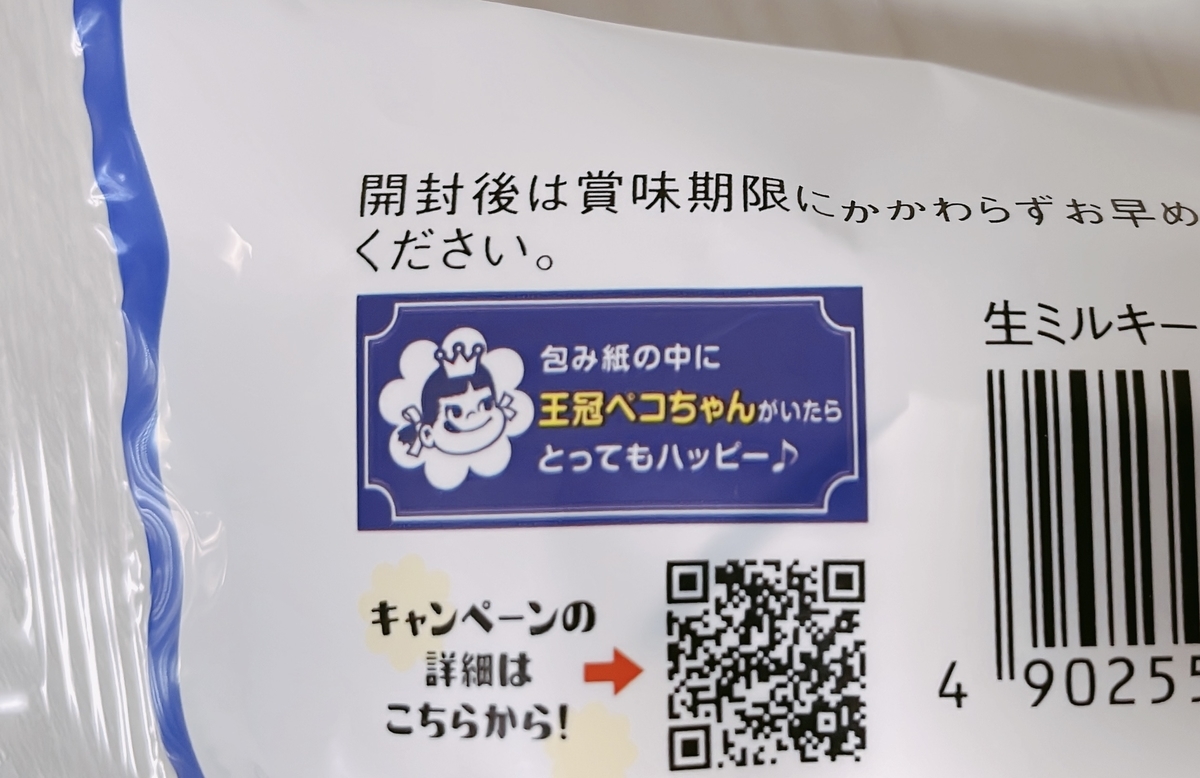 開封後は賞味期限にかかわらずお早め
ください。
包み紙の中に
王冠ペコちゃんがいたら
とってもハッピー♪
キャンペーンの
詳細は
こちらから!
生ミルキー
4 90255